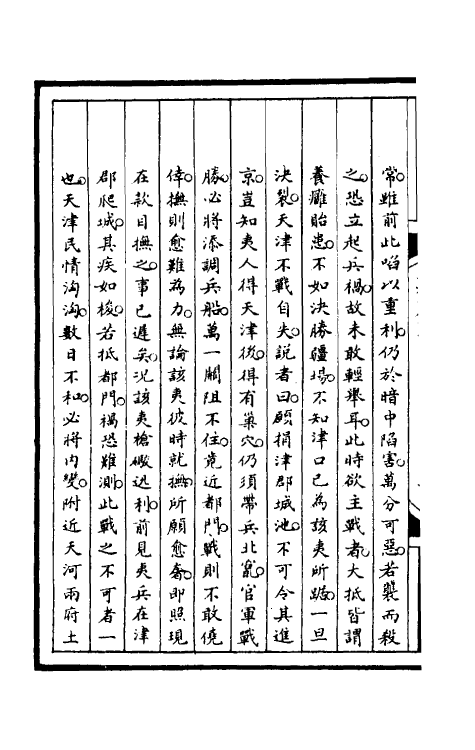 常雖前此啗以重利仍於暗中陷害萬分可惡若襲而殺
之恐立起兵禍故未敢輕舉耳此時欲主戰者大抵皆謂
養癰貽患不如決勝疆場不知津口已為該夷所踞一旦
決裂天津不戰自失説者曰願捐津郡城池不可令其進
京豈知夷人得天津後得有巢穴仍須帶兵北竄官軍戰
勝必將添調兵船萬一闌阻不住竟近都門戰則不敢僥
倖撫則愈難為力無論該夷彼時就撫所願愈奢即照現
在款目撫之事已遲矣况該夷槍礮迅利前見夷兵在津
郡爬城其疾如梭若抵都門禍恐難測此戰之不可者一
也天津民情洶洶數日不和必將内變附近天河兩府土